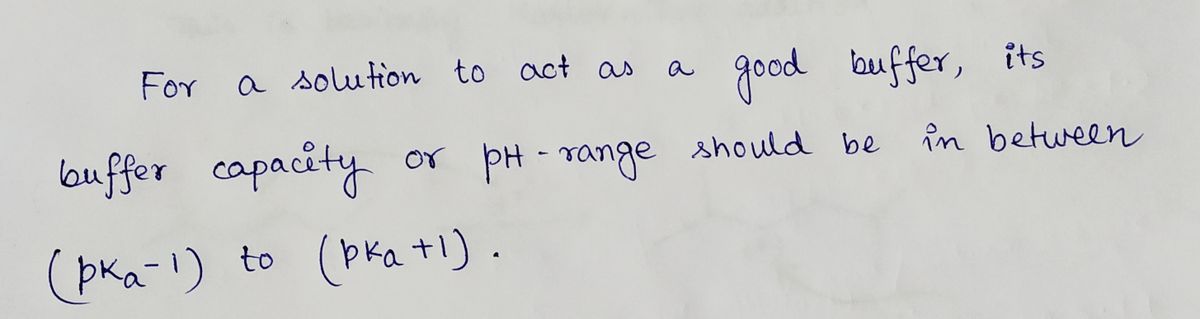 For a solution to act as a good buffer, its
buffer capacity or pH-range should be in between
(pKa-1) to (pKa+1).